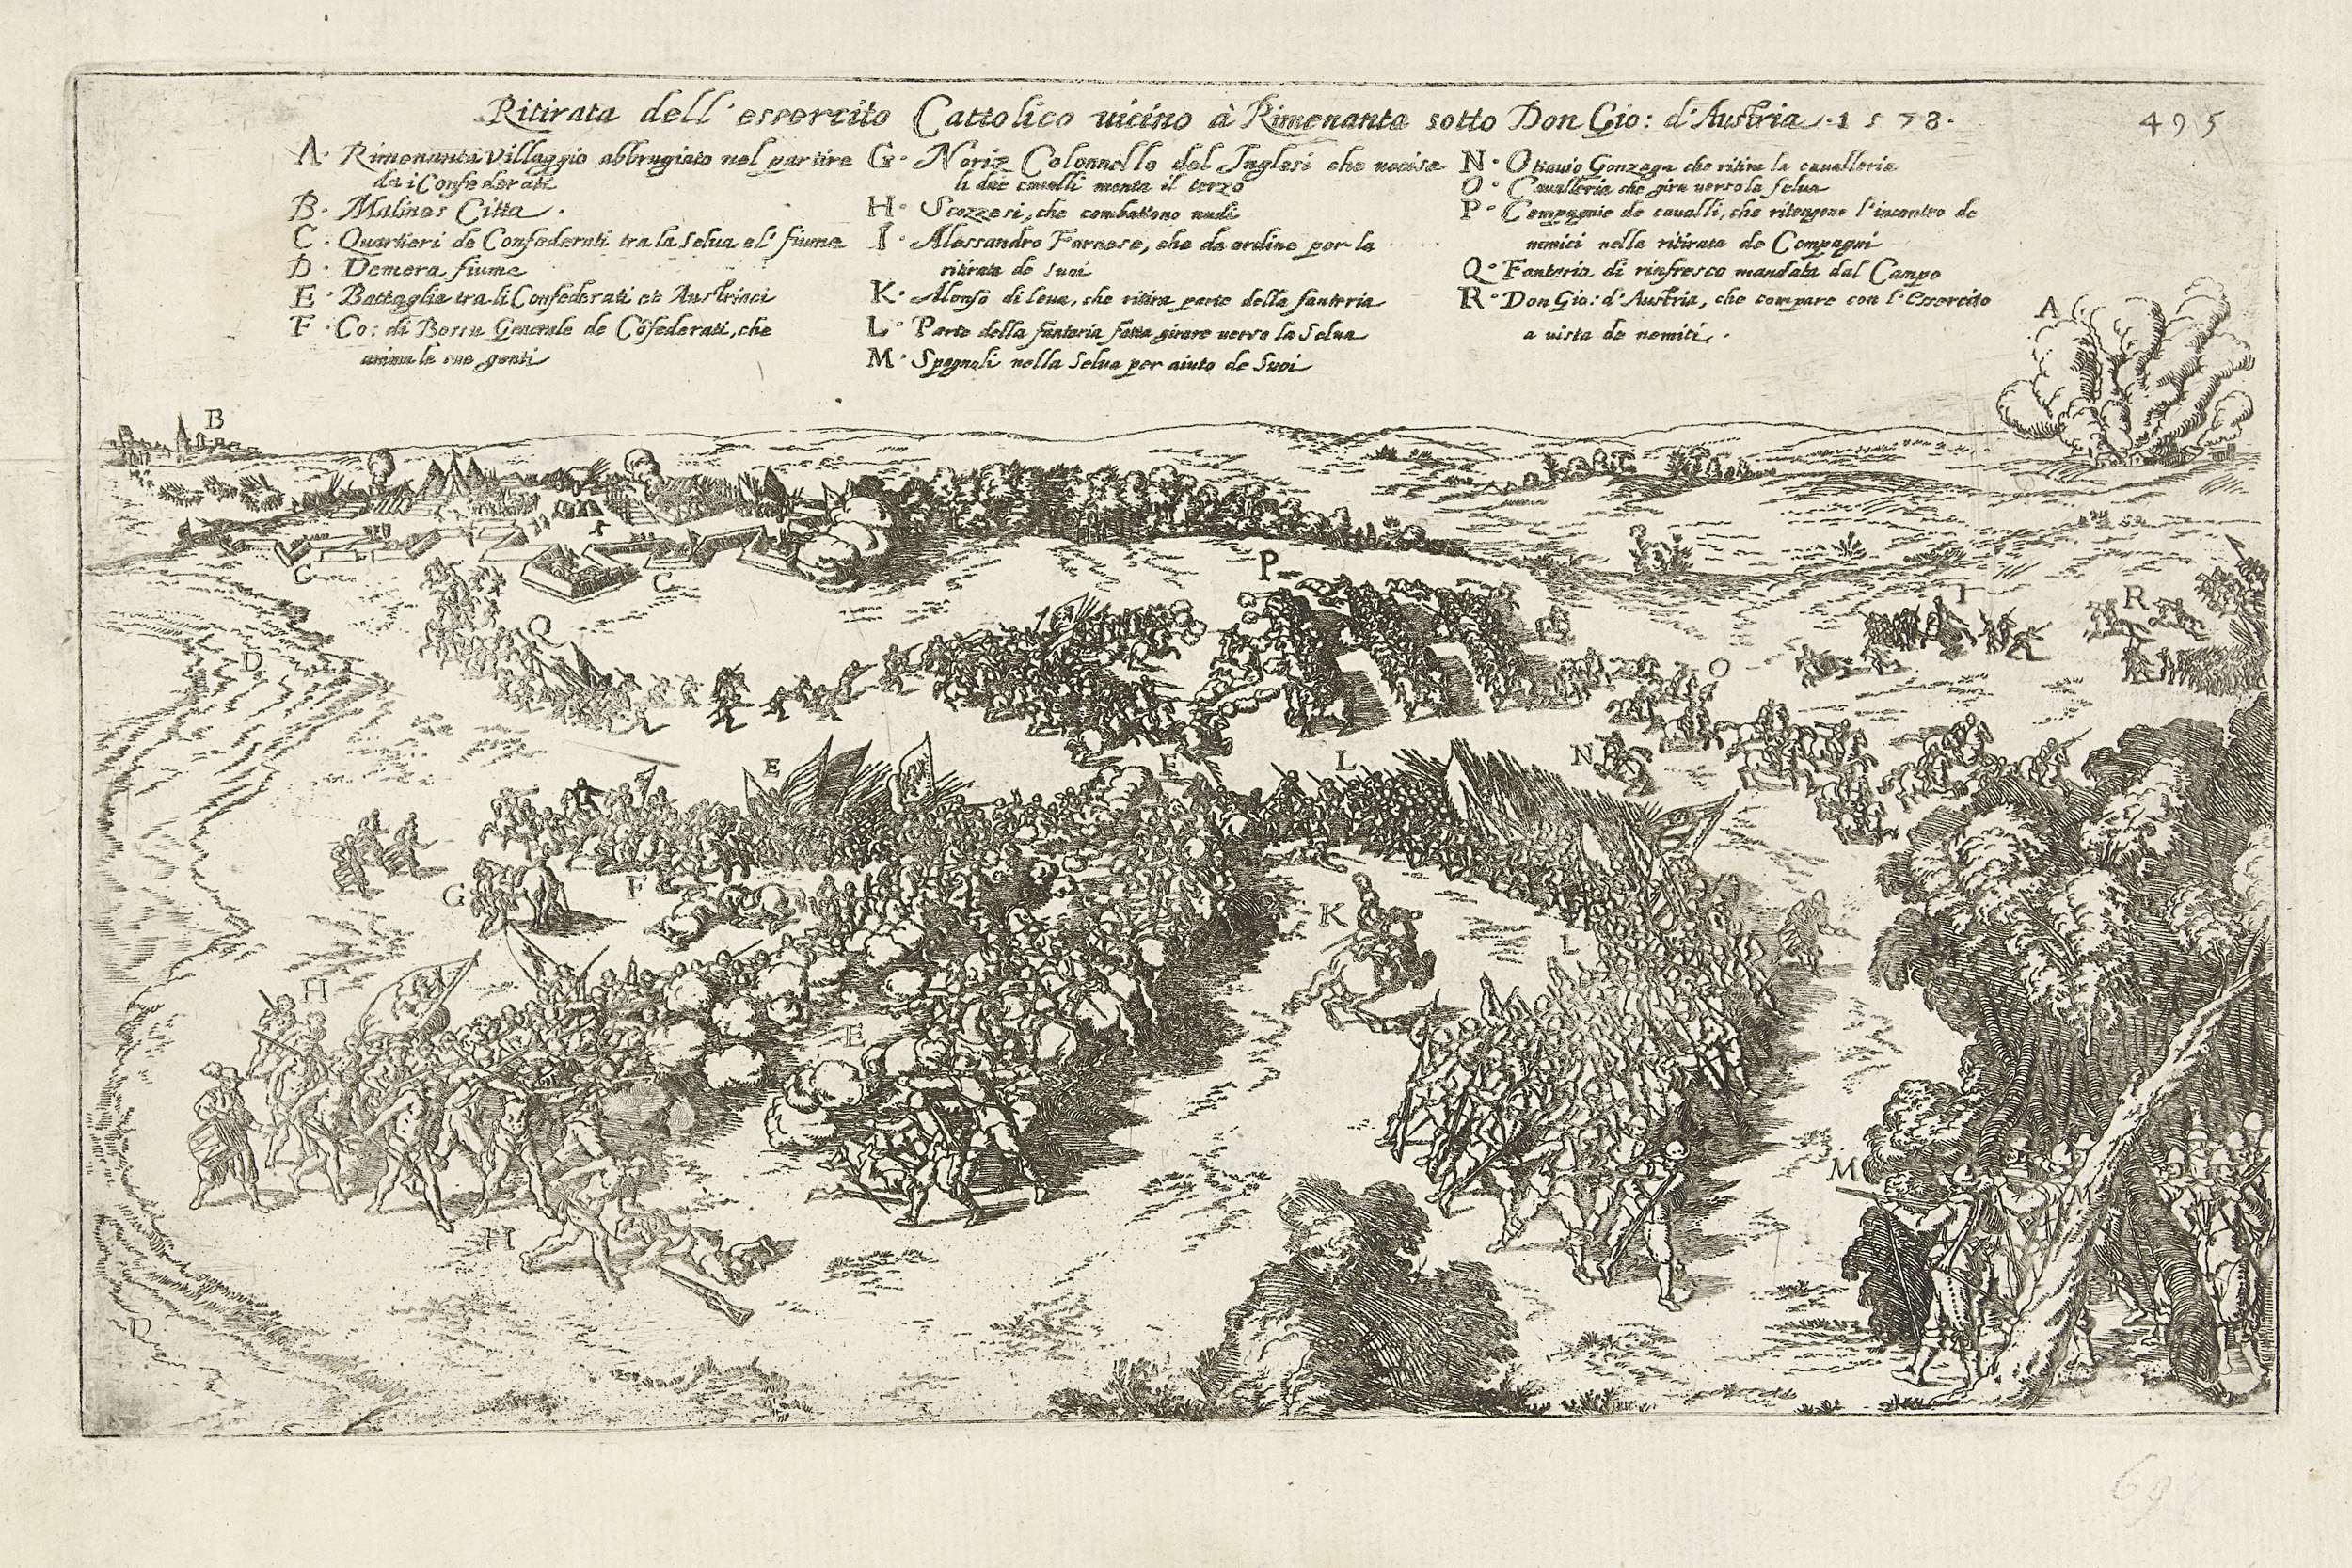 Ritirata dell' essercito Cattolico uicino à Rimenante sotto Don Gio: d'Austria. 1578.
495
A. Rimenante Villaggio abbrugiato nel partire
da i Confederati
B. Malines Citta.
C. Quartieri de Confederati tra la selua el' fiume
D. Demera fiume
E. Battaglia tra li Confederati et Austriaci
F. Co: di Bossu Generale de Cōfederati, che
anima le sue genti
G. Noriz Colonnello del Inglesi che uccise
li due caualli monta il terzo
H. Scozzesi, che combattono nudi
I. Alessandro Farnese, che da ordine per la
ritirata de suoi
K. Alonso di leua, che ritira parte della fanteria
L. Parte della fanteria fatta girare uerso la Selua
M. Spagnoli nella Selua per aiuto de Suoi
N. Ottauio Gonzaga che ritira la caualleria
O. Caualleria che gira uerso la selua
P. Compagnie de caualli, che ritengono l'incontro de
nemici nella ritirata de Compagni
Q. Fanteria di rinfresco mandata dal Campo
R. Don Gio: d'Austria, che compare con l'Essercito
a uista de nemici.
A
B
C
C
P
I
R
Q
D
O
E
E
L
N
G
F
K
L
H
E
M
M
H
D
69